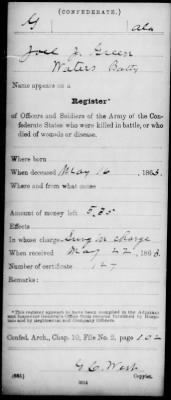 (CONFEDERATE.)
G Ala
Joel J. Green
Waters Batty
Name appears on a
Register*
of Officers and Soldiers of the Army of the Confederate States who were killed in battle, or who died of wounds or disease.
Where born
When deceased May 16, 1863.
Where and from what cause
Amount of money left 5.35
Effects
In whose charge Surg in charge
When received May 22, 1863.
Number of certificate 127
Remarks:
*This register appears to have been compiled in the Adjutant and Inspector General's Office from returns furnished by Hospitals and by Regimental and Company Officers.
Confed. Arch., Chap. 10, File No. 2, page 102
G. C. West
Copyist.